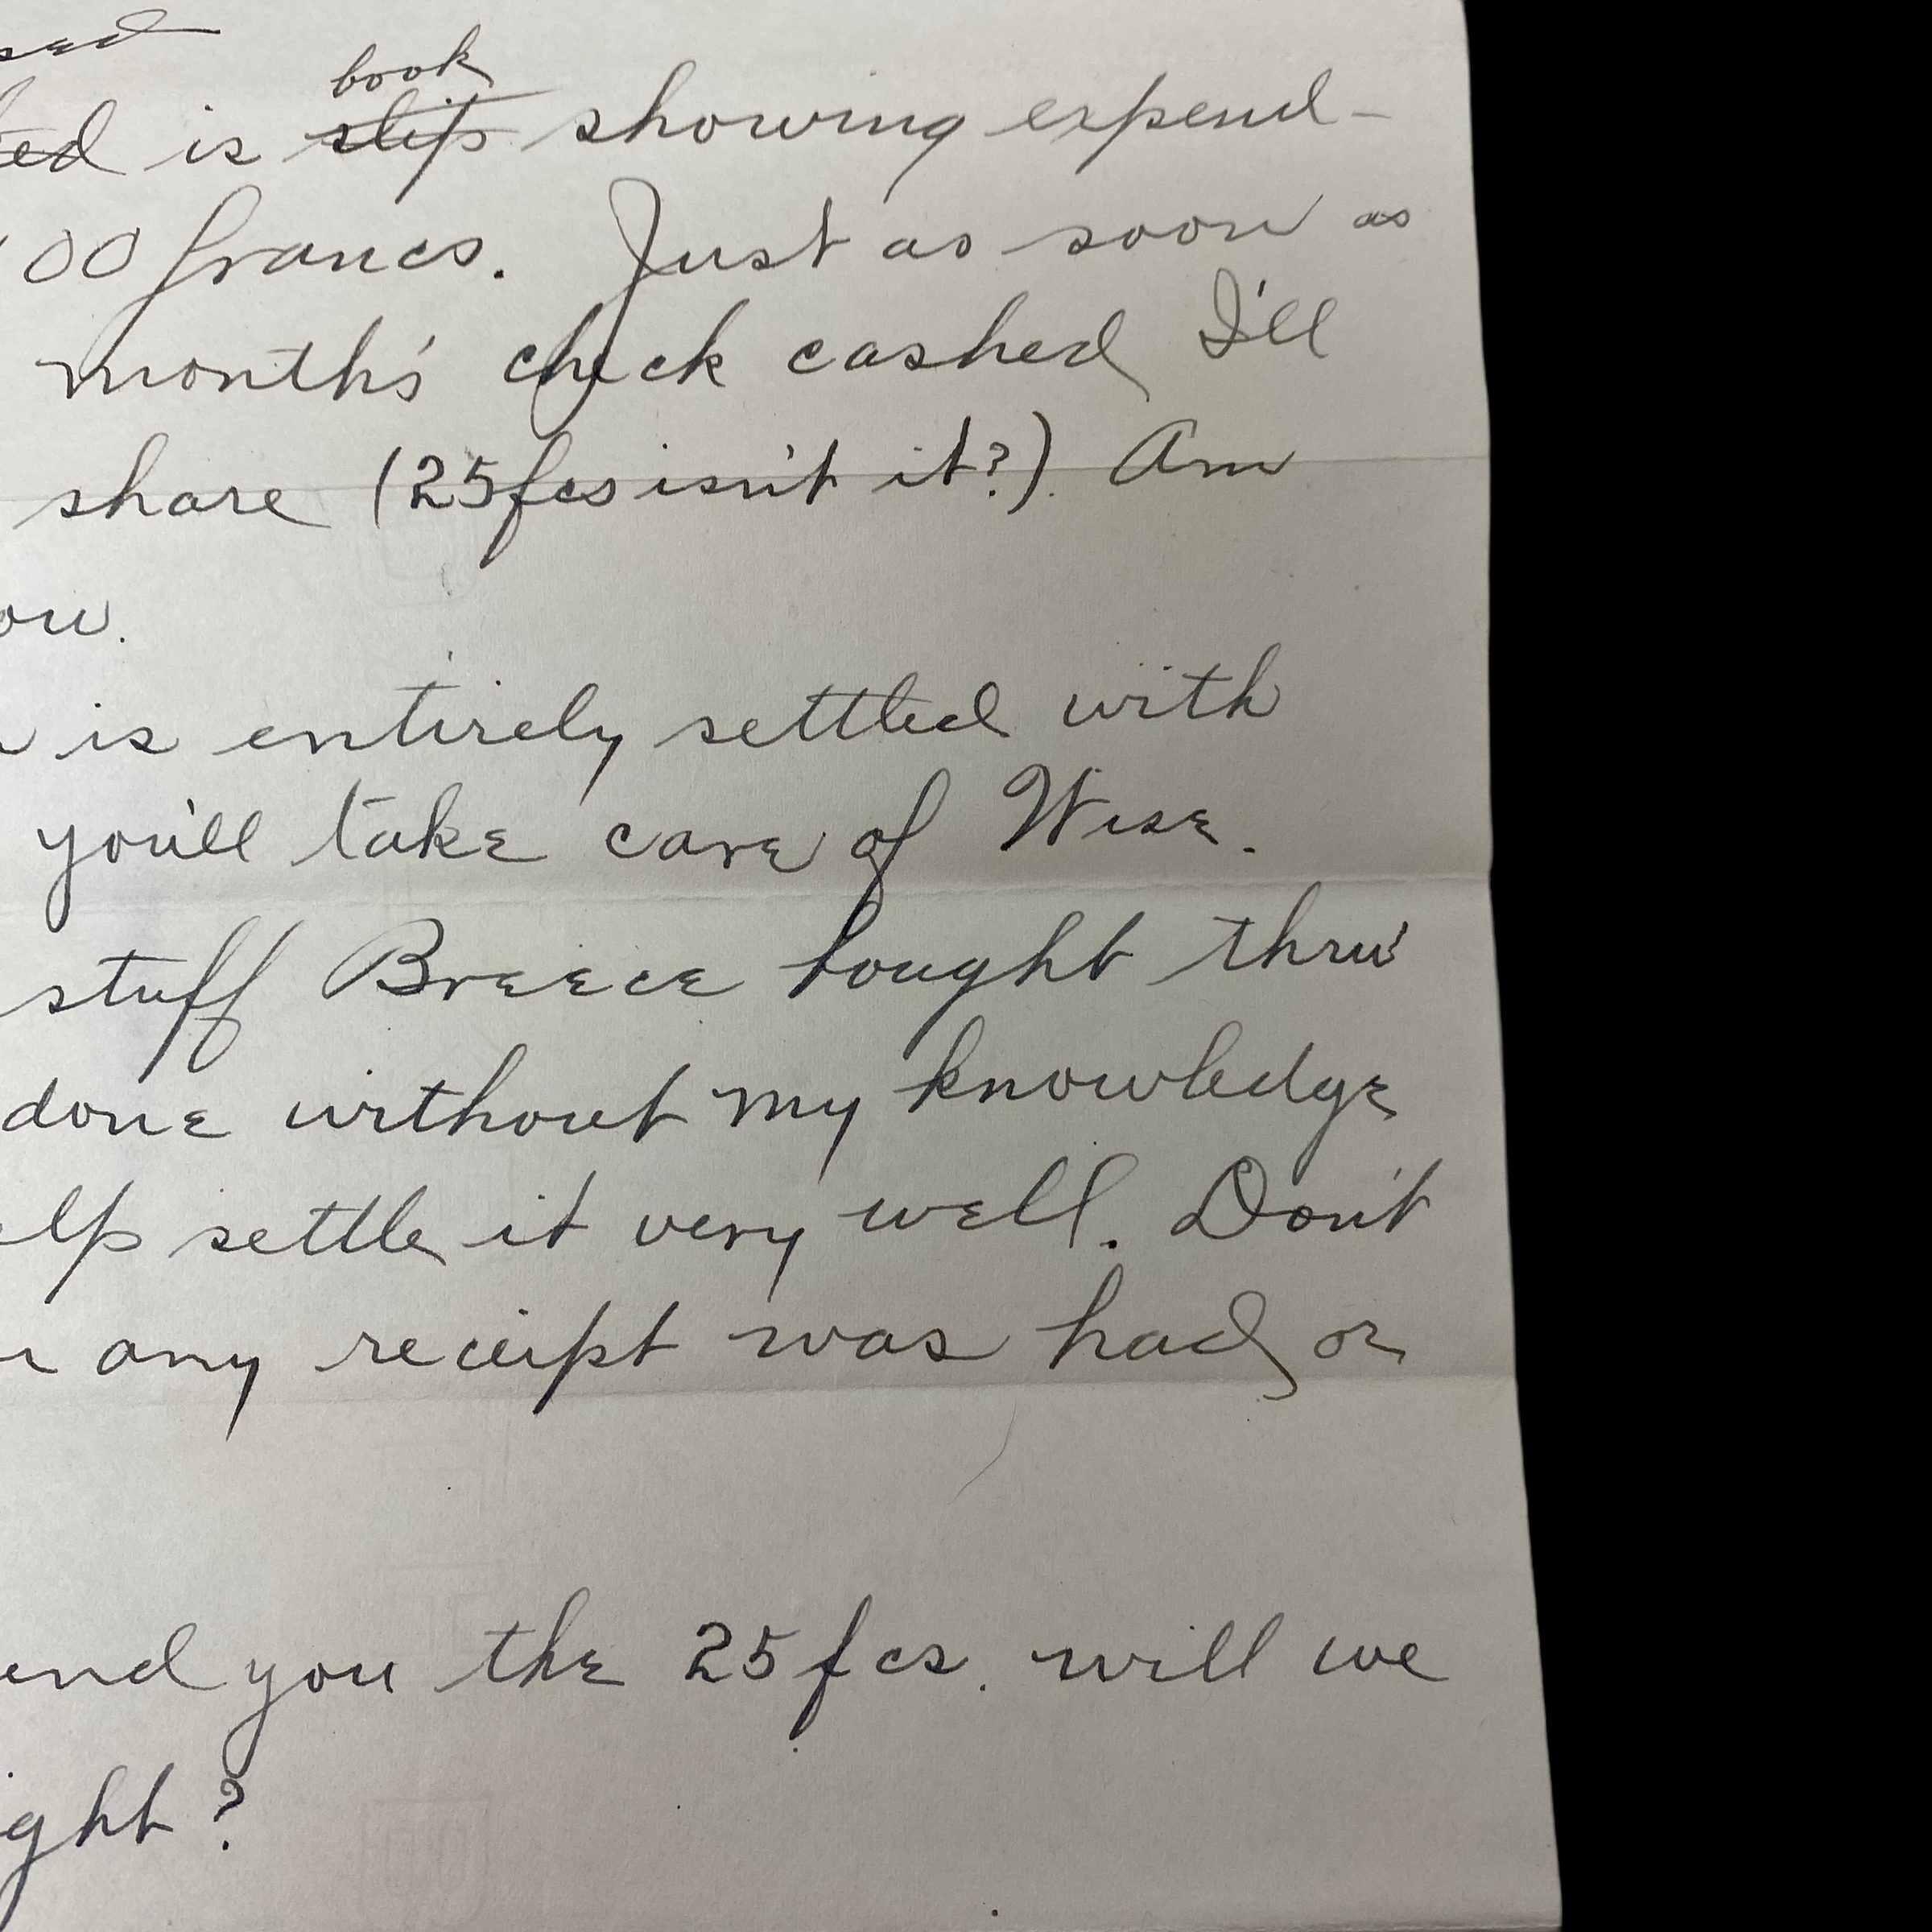 book
is slip showing expend-
00 francs. Just as soon as
month's check cashed I'll
share (25fcs isn't it?). Am
is entirely settled with
you'll take care of Wise.
stuff Breece bought thru'
done without my knowledge
settle it very well. Don't
any receipt was had or
you the 25 fcs. will we
?